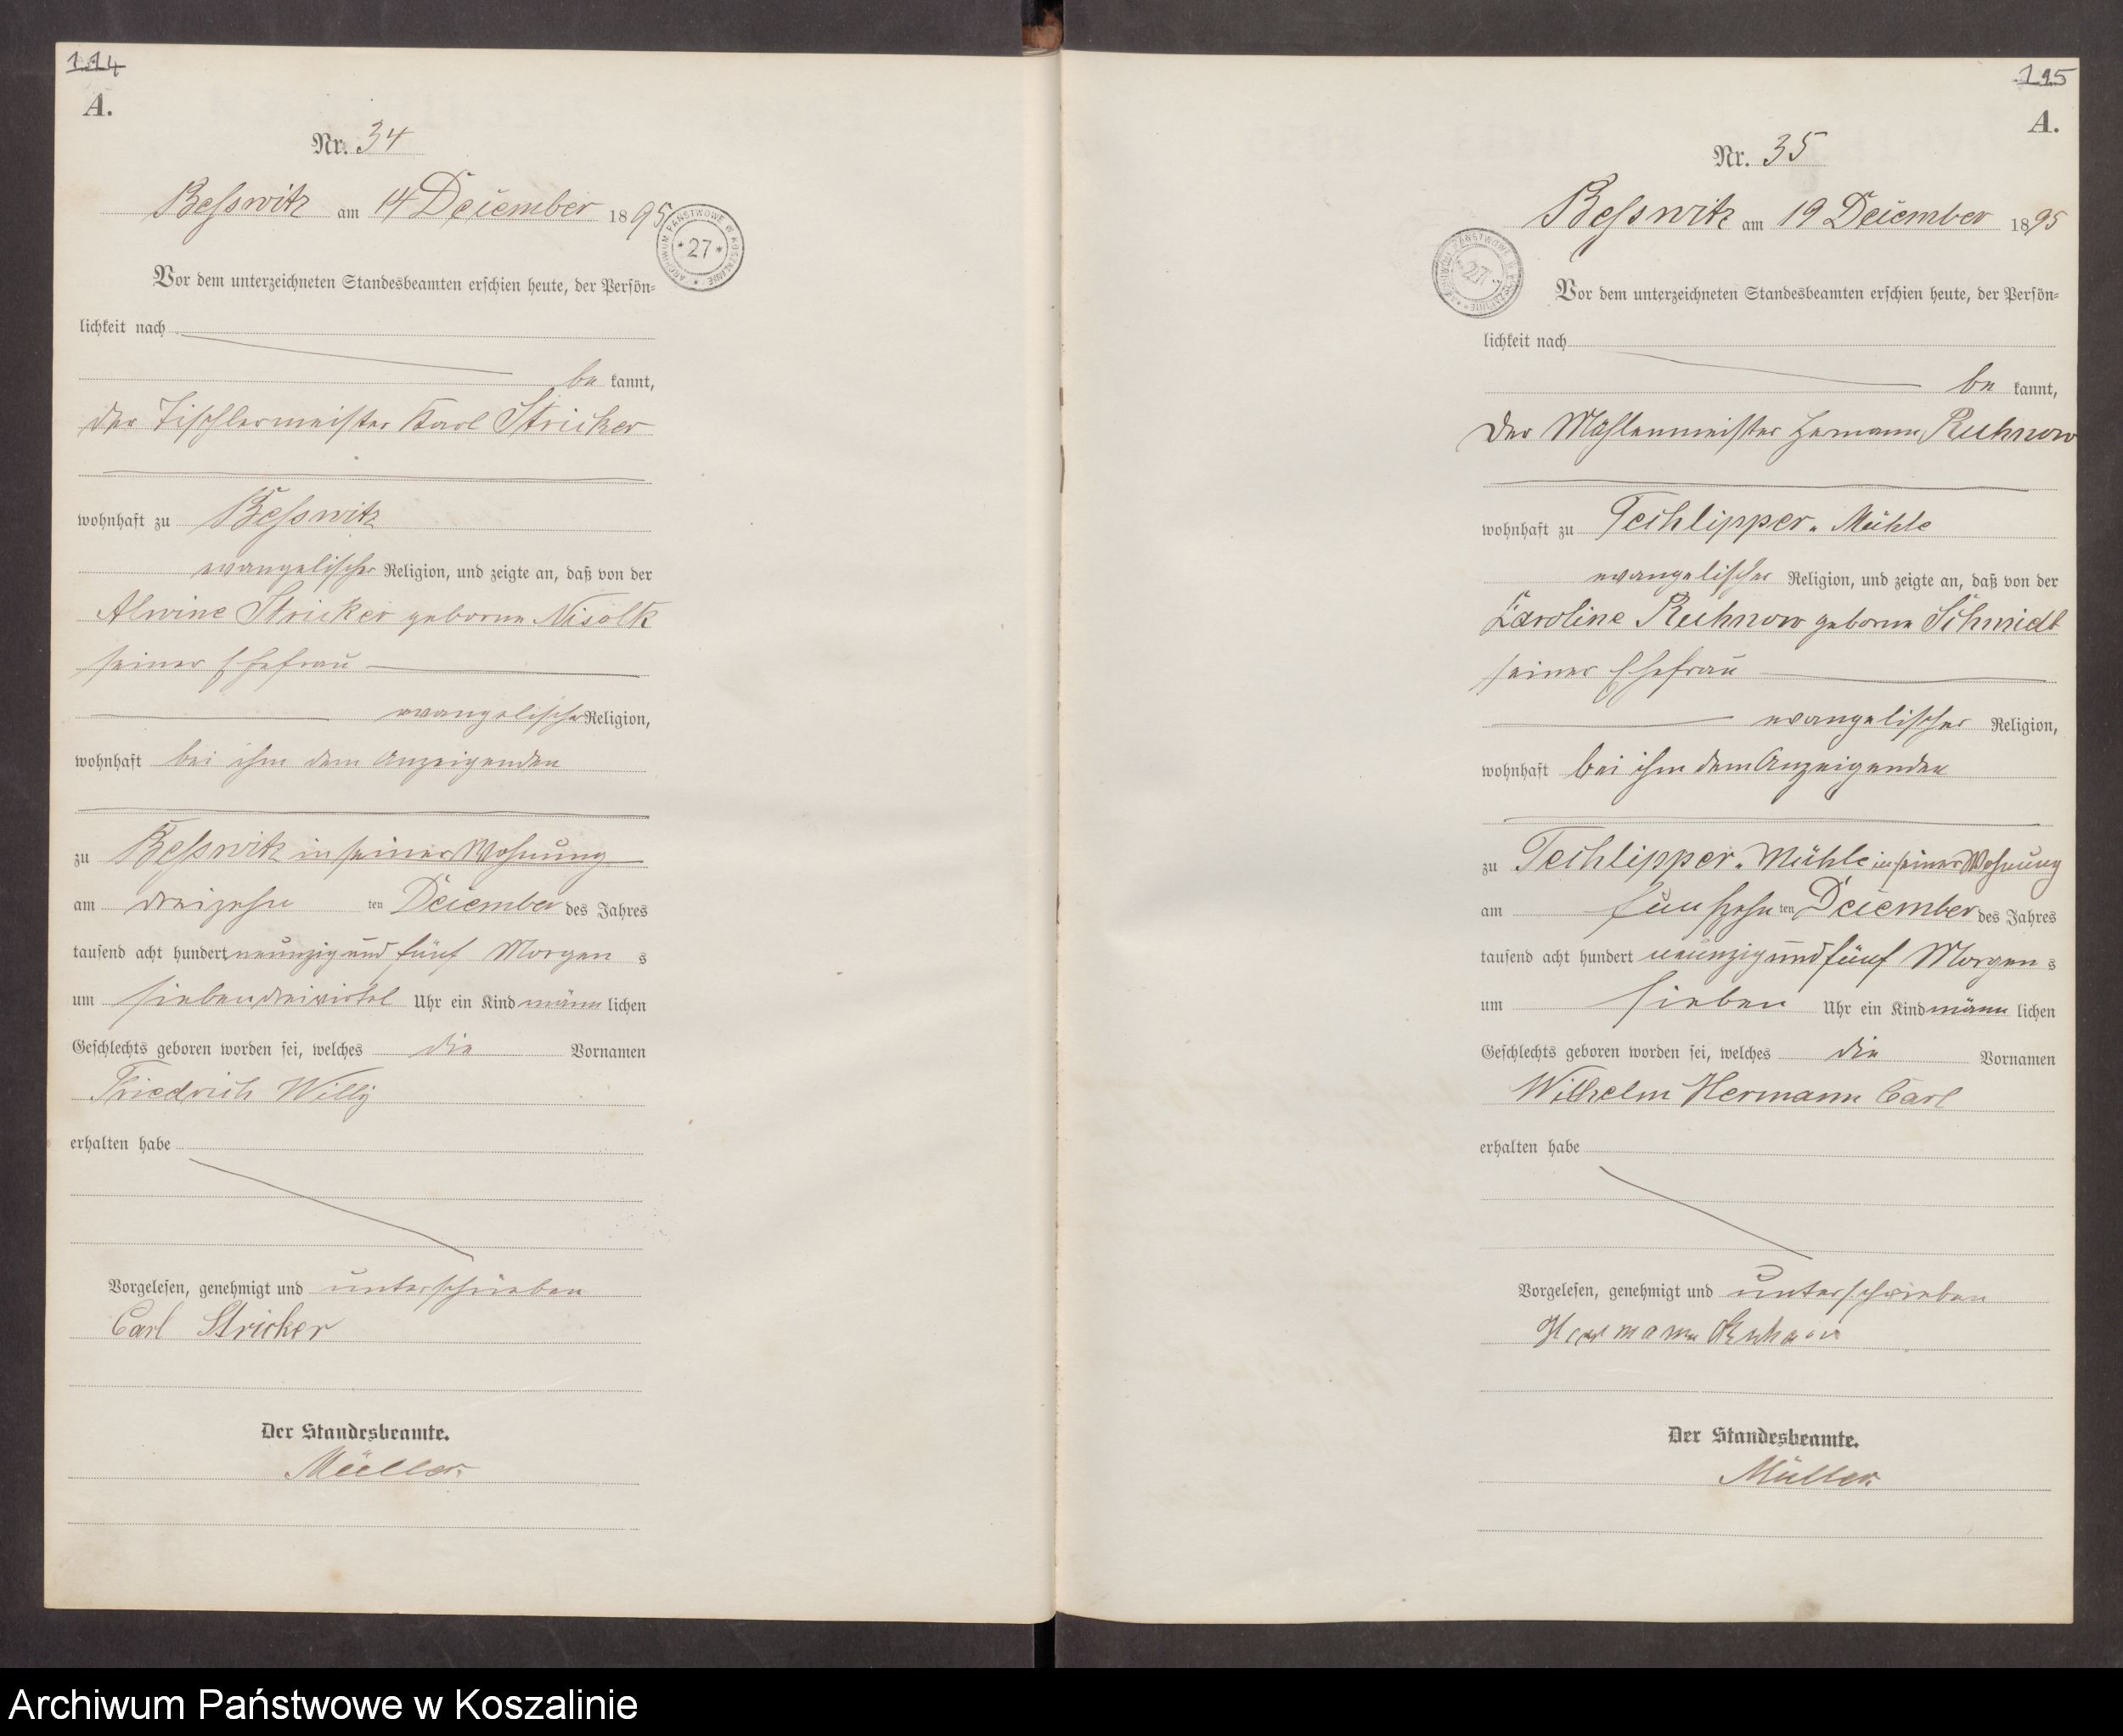 114
A.
Nr. 34
Beßwitz am 14 December 1895
ARCHIWUM PAŃSTWOWE W KOSZALINIE * 27 *
Vor dem unterzeichneten Standesbeamten erschien heute, der Persön-
lichkeit nach
be kannt,
der Tischlermeister Karl Stricker
wohnhaft zu Beßwitz
evangelischer Religion, und zeigte an, daß von der
Alwine Stricker geborne
seiner Ehefrau
evangelischer Religion,
wohnhaft bei ihm dem Anzeigenden
zu Beßwitz in seiner Wohnung
am dreizehn ten December des Jahres
tausend acht hundert neunzig und fünf Morgen s
um sieben dreiviertel Uhr ein Kind männ lichen
Geschlechts geboren worden sei, welches die Vornamen
Friedrich Willy
erhalten habe
Vorgelesen, genehmigt und unterschrieben
Carl Stricker
Der Standesbeamte.
Müller.
115
A.
Nr. 35
Beßwitz am 19 December 1895
ARCHIWUM PAŃSTWOWE W KOSZALINIE * 27 *
Vor dem unterzeichneten Standesbeamten erschien heute, der Persön-
lichkeit nach
be kannt,
der Mühlenmeister Hermann Ruhnow
wohnhaft zu Techlipper-Mühle
evangelischer Religion, und zeigte an, daß von der
Karoline Ruhnow geborne Schmidt
seiner Ehefrau
evangelischer Religion,
wohnhaft bei ihm dem Anzeigenden
zu Techlipper-Mühle in seiner Wohnung
am funfzehn ten December des Jahres
tausend acht hundert neunzig und fünf Morgen s
um sieben Uhr ein Kind männ lichen
Geschlechts geboren worden sei, welches die Vornamen
Wilhelm Hermann Carl
erhalten habe
Vorgelesen, genehmigt und unterschrieben
Hermann Ruhnow
Der Standesbeamte.
Müller.
Archiwum Państwowe w Koszalinie